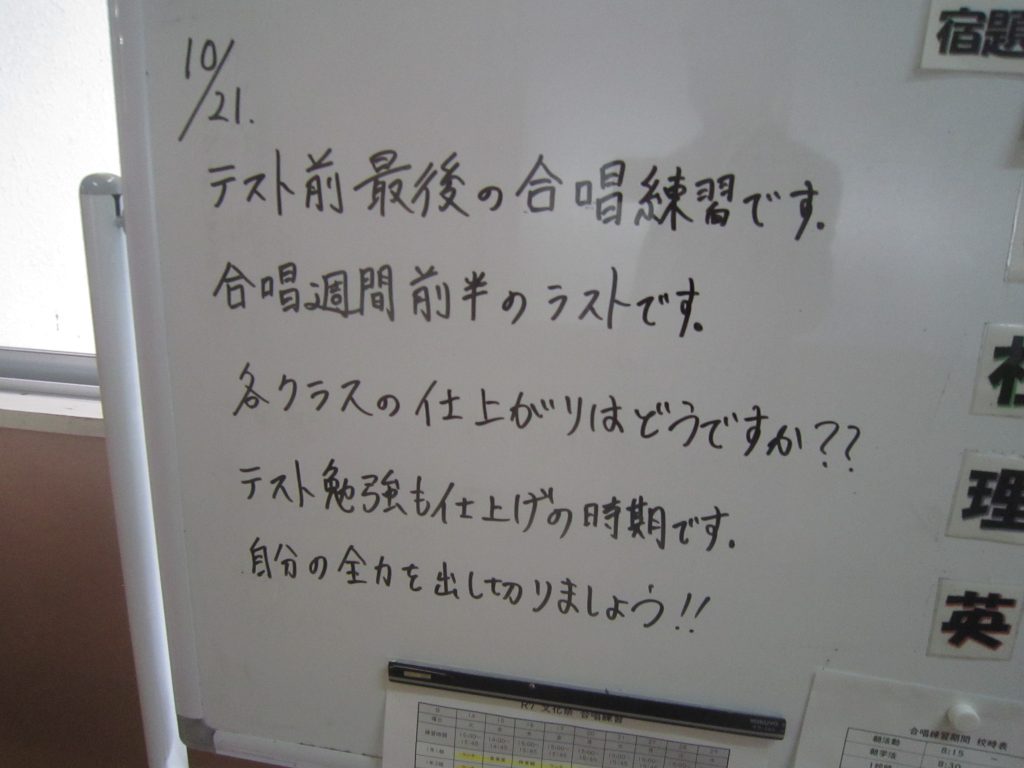 10/21.
テスト前最後の合唱練習です.
合唱週間前半のラストです.
各クラスの仕上がりはどうですか??
テスト勉強も仕上げの時期です.
自分の全力を出し切りましょう!!
宿題
理
英
R7 文化祭 合唱練習
合唱練習期間 校時表
朝活動 8:15